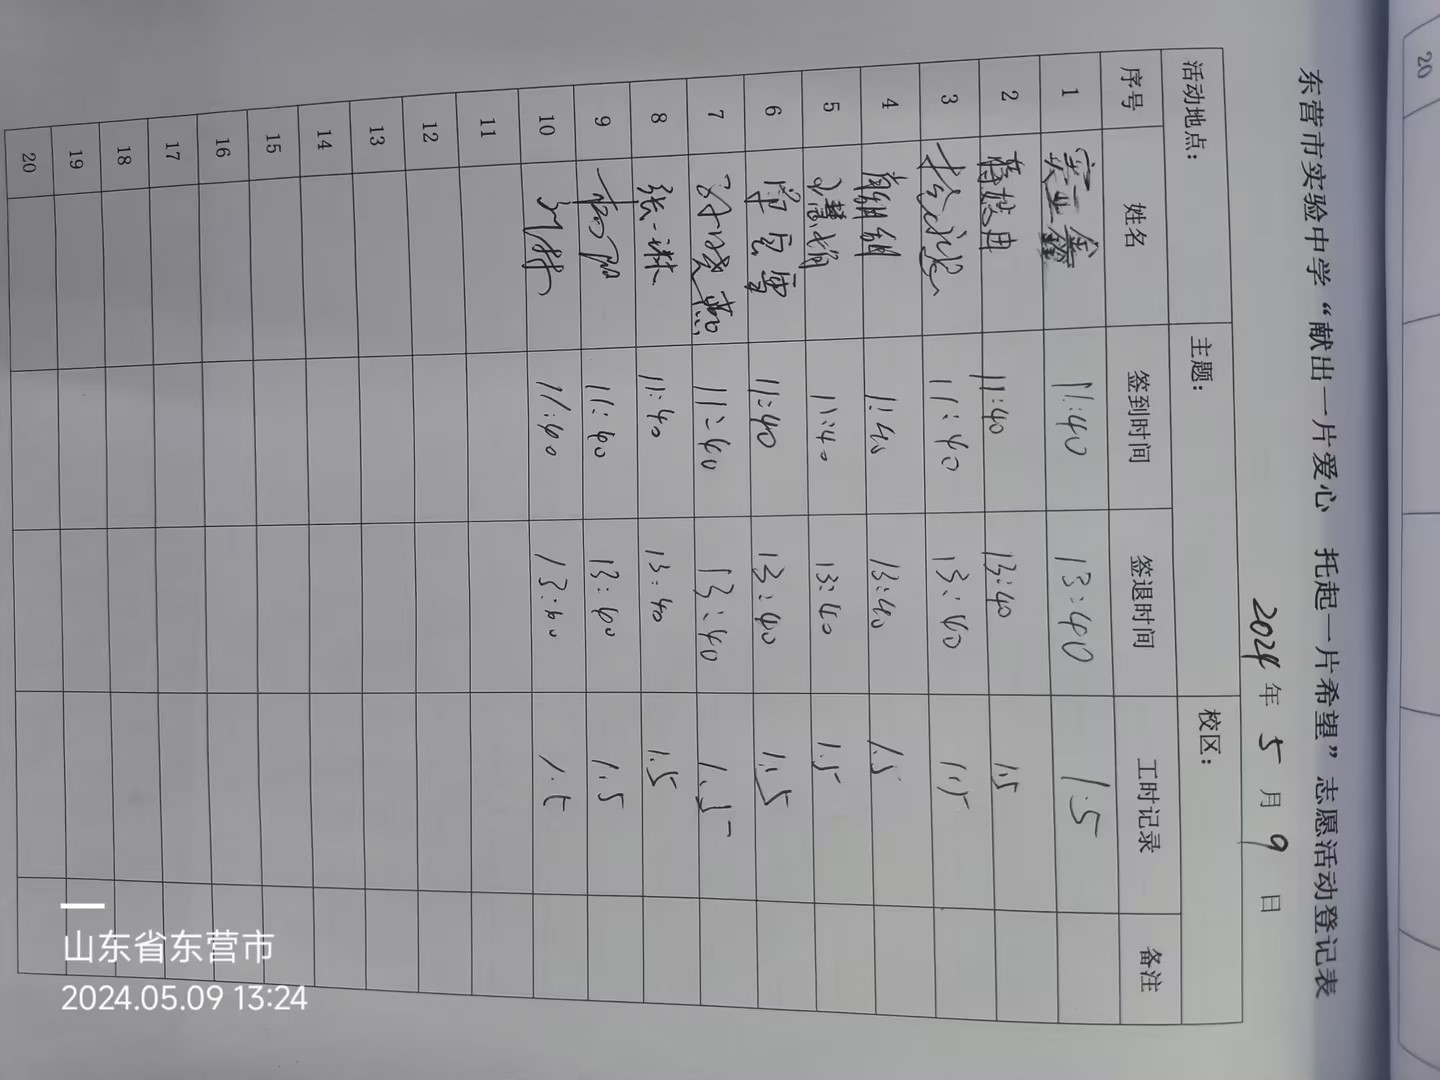 东营市实验中学“献出一片爱心 托起一片希望”志愿活动登记表
2024年5月9日
活动地点： 主题： 校区：
序号 姓名 签到时间 签退时间 工时记录 备注
1 11:40 13:40 1.5
2 11:40 13:40 1.5
3 11:40 13:40 1.5
4 11:40 13:40 1.5
5 11:40 13:40 1.5
6 11:40 13:40 1.5
7 11:40 13:40 1.5
8 张一琳 11:40 13:40 1.5
9 11:40 13:40 1.5
10 11:40 13:40 1.5
11
12
13
14
15
16
17
18
19
20
20
山东省东营市
2024.05.09 13:24